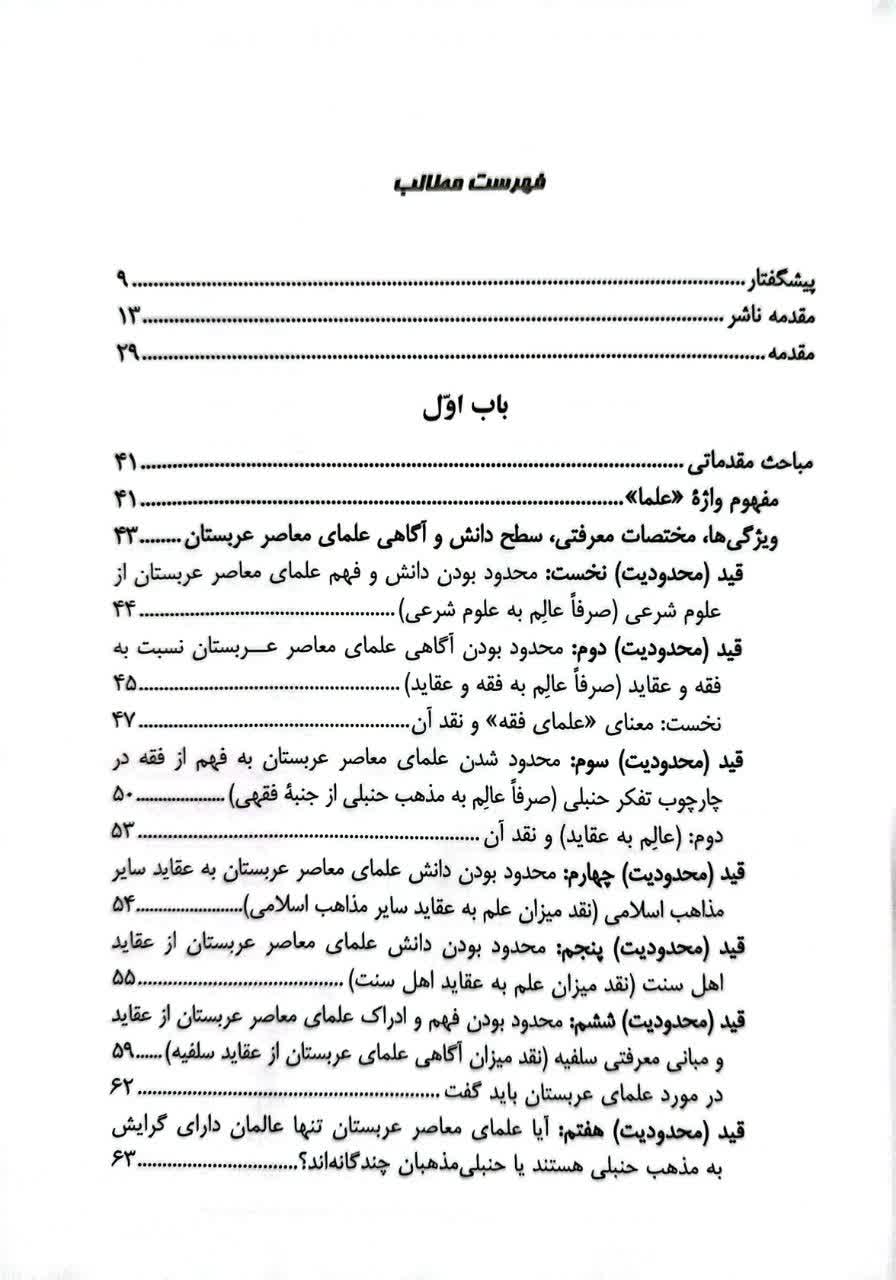 فهرست مطالب
پیشگفتار ........ ۹
مقدمه ناشر ........ ۱۳
مقدمه ........ ۲۹
باب اوّل
مباحث مقدماتی ........ ۴۱
مفهوم واژهٔ «علما» ........ ۴۱
ویژگی‌ها، مختصات معرفتی، سطح دانش و آگاهی علمای معاصر عربستان ........ ۴۳
قید (محدودیت) نخست: محدود بودن دانش و فهم علمای معاصر عربستان از
علوم شرعی (صرفاً عالِم به علوم شرعی) ........ ۴۴
قید (محدودیت) دوم: محدود بودن آگاهی علمای معاصر عــربستان نسبت به
فقه و عقاید (صرفاً عالِم به فقه و عقاید) ........ ۴۵
نخست: معنای «علمای فقه» و نقد آن ........ ۴۷
قید (محدودیت) سوم: محدود شدن علمای معاصر عربستان به فهم از فقه در
چارچوب تفکر حنبلی (صرفاً عالِم به مذهب حنبلی از جنبهٔ فقهی) ........ ۵۰
دوم: (عالِم به عقاید) و نقد آن ........ ۵۳
قید (محدودیت) چهارم: محدود بودن دانش علمای معاصر عربستان به عقاید سایر
مذاهب اسلامی (نقد میزان علم به عقاید سایر مذاهب اسلامی) ........ ۵۴
قید (محدودیت) پنجم: محدود بودن دانش علمای معاصر عربستان از عقاید
اهل سنت (نقد میزان علم به عقاید اهل سنت) ........ ۵۵
قید (محدودیت) ششم: محدود بودن فهم و ادراک علمای معاصر عربستان از عقاید
و مبانی معرفتی سلفیه (نقد میزان آگاهی علمای عربستان از عقاید سلفیه) ...... ۵۹
در مورد علمای عربستان باید گفت ........ ۶۲
قید (محدودیت) هفتم: آیا علمای معاصر عربستان تنها عالمان دارای گرایش
به مذهب حنبلی هستند یا حنبلی‌مذهبان چندگانه‌اند؟ ........ ۶۳